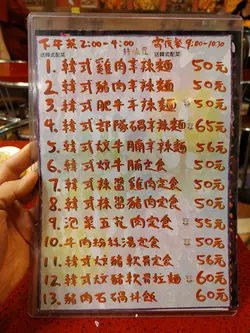 下午茶 2:00-4:00 特味屋 宵夜餐 9:00-10:30
送韓式配菜 送韓式配菜
1. 韓式雞肉辛辣麵 50元
2. 韓式豬肉辛辣麵 50元
3. 韓式肥牛辛辣麵 50元
4. 韓式部隊鍋辛辣麵 65元
5. 韓式炆牛腩辛辣麵 56元
6. 韓式炆牛腩定食 50元
7. 韓式辣醬雞肉定食 50元
8. 韓式辣醬豬肉定食 50元
9. 泡菜五花肉定食 55元
10. 牛肉粉絲湯定食 50元
11. 韓式炆豬軟骨定食 56元
12. 韓式炆豬軟骨拉麵 60元
13. 豬肉石鍋拌飯 60元